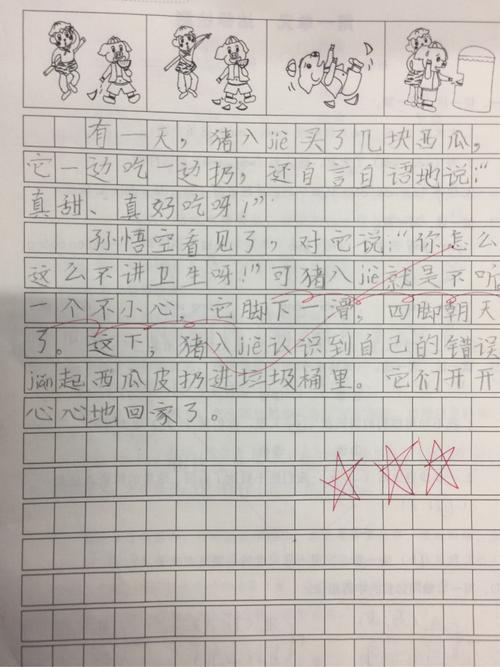 有一天，猪入jiè买了几块西瓜，
它一边吃一边扔，还自言自语地说：“
真甜、真好吃呀！”
孙悟空看见了，对它说：“你怎么
这么不讲卫生呀！”可猪八jiè就是不听
一个不小心，它脚下一滑，四脚朝天
了。这下，猪入jiè认识到自己的错误
jiǎn起西瓜皮扔进垃圾桶里。它们开开
心心地回家了。